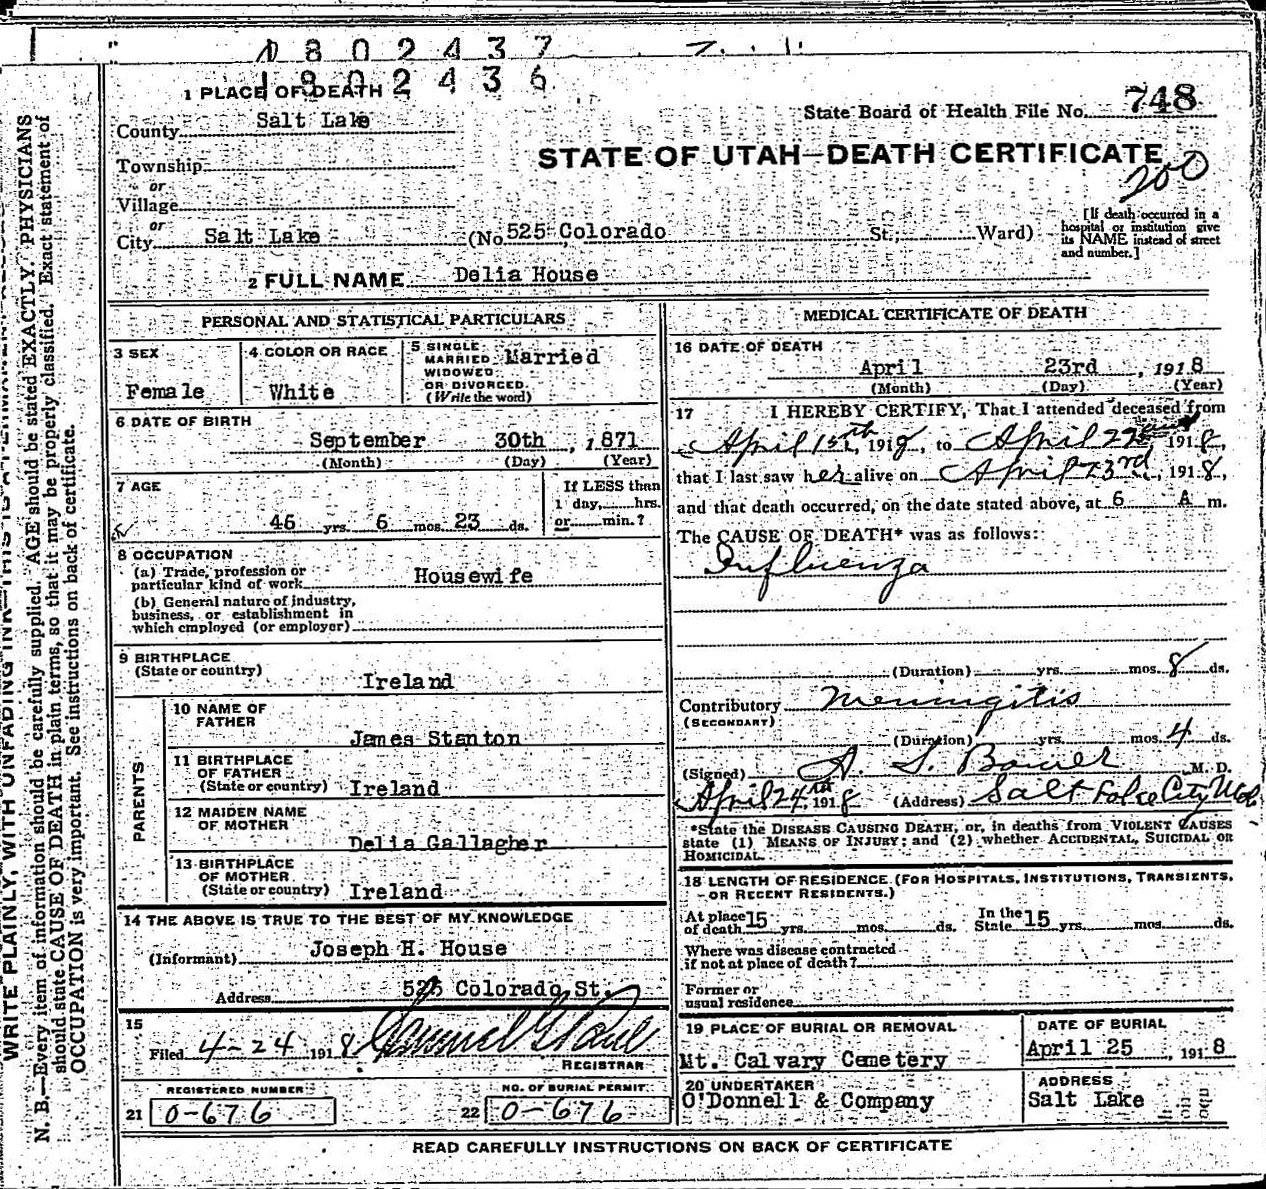 1802437
1902436
1 PLACE OF DEATH
State Board of Health File No. 748
County Salt Lake
STATE OF UTAH—DEATH CERTIFICATE
200
Township
or
Village
or
City Salt Lake (No. 525 Colorado St.; Ward)
[If death occurred in a hospital or institution give its NAME instead of street and number.]
2 FULL NAME Delia House
PERSONAL AND STATISTICAL PARTICULARS
3 SEX Female
4 COLOR OR RACE White
5 SINGLE MARRIED WIDOWED OR DIVORCED (Write the word) Married
6 DATE OF BIRTH
September 30th, 1871
(Month) (Day) (Year)
7 AGE
46 yrs. 6 mos. 23 ds.
If LESS than 1 day, hrs. or min.?
8 OCCUPATION
(a) Trade, profession or particular kind of work Housewife
(b) General nature of industry, business, or establishment in which employed (or employer)
9 BIRTHPLACE
(State or country) Ireland
PARENTS
10 NAME OF FATHER James Stanton
11 BIRTHPLACE OF FATHER (State or country) Ireland
12 MAIDEN NAME OF MOTHER Delia Gallagher
13 BIRTHPLACE OF MOTHER (State or country) Ireland
14 THE ABOVE IS TRUE TO THE BEST OF MY KNOWLEDGE
(Informant) Joseph H. House
Address 525 Colorado St.
15
Filed 4-24 1918
REGISTRAR
REGISTERED NUMBER
21 0-676
NO. OF BURIAL PERMIT
22 0-676
MEDICAL CERTIFICATE OF DEATH
16 DATE OF DEATH
April 23rd, 1918
(Month) (Day) (Year)
17 I HEREBY CERTIFY, That I attended deceased from
April 15th, 1918, to April 22 1918,
that I last saw her alive on April 23rd, 1918,
and that death occurred, on the date stated above, at 6 A m.
The CAUSE OF DEATH* was as follows:
Influenza
(Duration) yrs. mos. 8 ds.
Contributory Meningitis
(SECONDARY)
(Duration) yrs. mos. 4 ds.
(Signed) A. S. Bower M. D.
April 24th, 1918 (Address) Salt Lake City Utah
*State the DISEASE CAUSING DEATH, or, in deaths from VIOLENT CAUSES
state (1) MEANS OF INJURY; and (2) whether ACCIDENTAL, SUICIDAL OR
HOMICIDAL.
18 LENGTH OF RESIDENCE (FOR HOSPITALS, INSTITUTIONS, TRANSIENTS,
OR RECENT RESIDENTS.)
At place of death 15 yrs. mos. ds. In the State 15 yrs. mos. ds.
Where was disease contracted
if not at place of death?
Former or
usual residence
19 PLACE OF BURIAL OR REMOVAL
Mt. Calvary Cemetery
DATE OF BURIAL
April 25, 1918
20 UNDERTAKER
O'Donnell & Company
ADDRESS
Salt Lake
READ CAREFULLY INSTRUCTIONS ON BACK OF CERTIFICATE
WRITE PLAINLY, WITH UNFADING INK—THIS IS A PERMANENT
N. B.—Every item of information should be carefully supplied. AGE should be stated EXACTLY. PHYSICIANS
should state CAUSE OF DEATH in plain terms, so that it may be properly classified. Exact statement of
OCCUPATION is very important. See instructions on back of certificate.